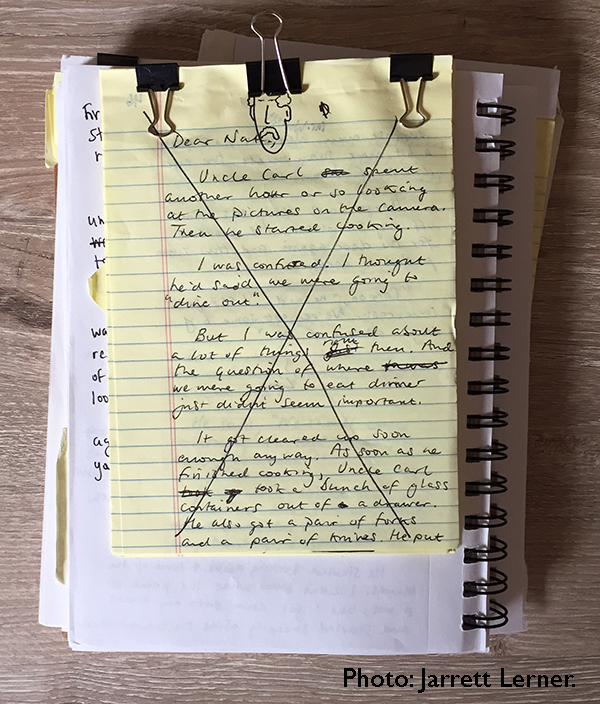 Dear
Uncle Carl spent
another hour or so looking
at the pictures on the camera.
Then he started cooking.
I was confused. I thought
he'd said we were going to
"dine out".
But I was confused about
a lot of things right then. And
the question of where
we were going to eat dinner
just didn't seem important.
It got cleared up soon
enough anyway. As soon as he
finished cooking, Uncle Carl
took a bunch of glass
containers out of a drawer.
He also got a pair of forks
and a pair of knives. He put
Photo: Jarrett Lerner.